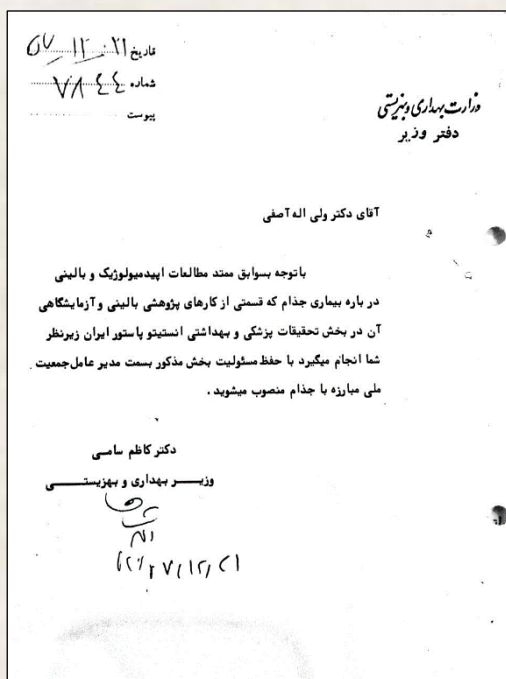 تاریخ ۵۷.۱۲.۲۱
شماره ۷۸۴۴
پیوست
وزارت بهداری و بهزیستی
دفتر وزیر
آقای دکتر ولی اله آصفی
باتوجه بسوابق ممتد مطالعات اپیدمیولوژیک و بالینی
در باره بیماری جذام که قسمتی از کارهای پژوهشی بالینی و آزمایشگاهی
آن در بخش تحقیقات پزشکی و بهداشتی انستیتو پاستور ایران زیرنظر
شما انجام میگیرد با حفظ مسئولیت بخش مذکور بسمت مدیر عامل جمعیت
ملی مبارزه با جذام منصوب میشوید .
دکتر کاظم سامی
وزیر بهداری و بهزیستی